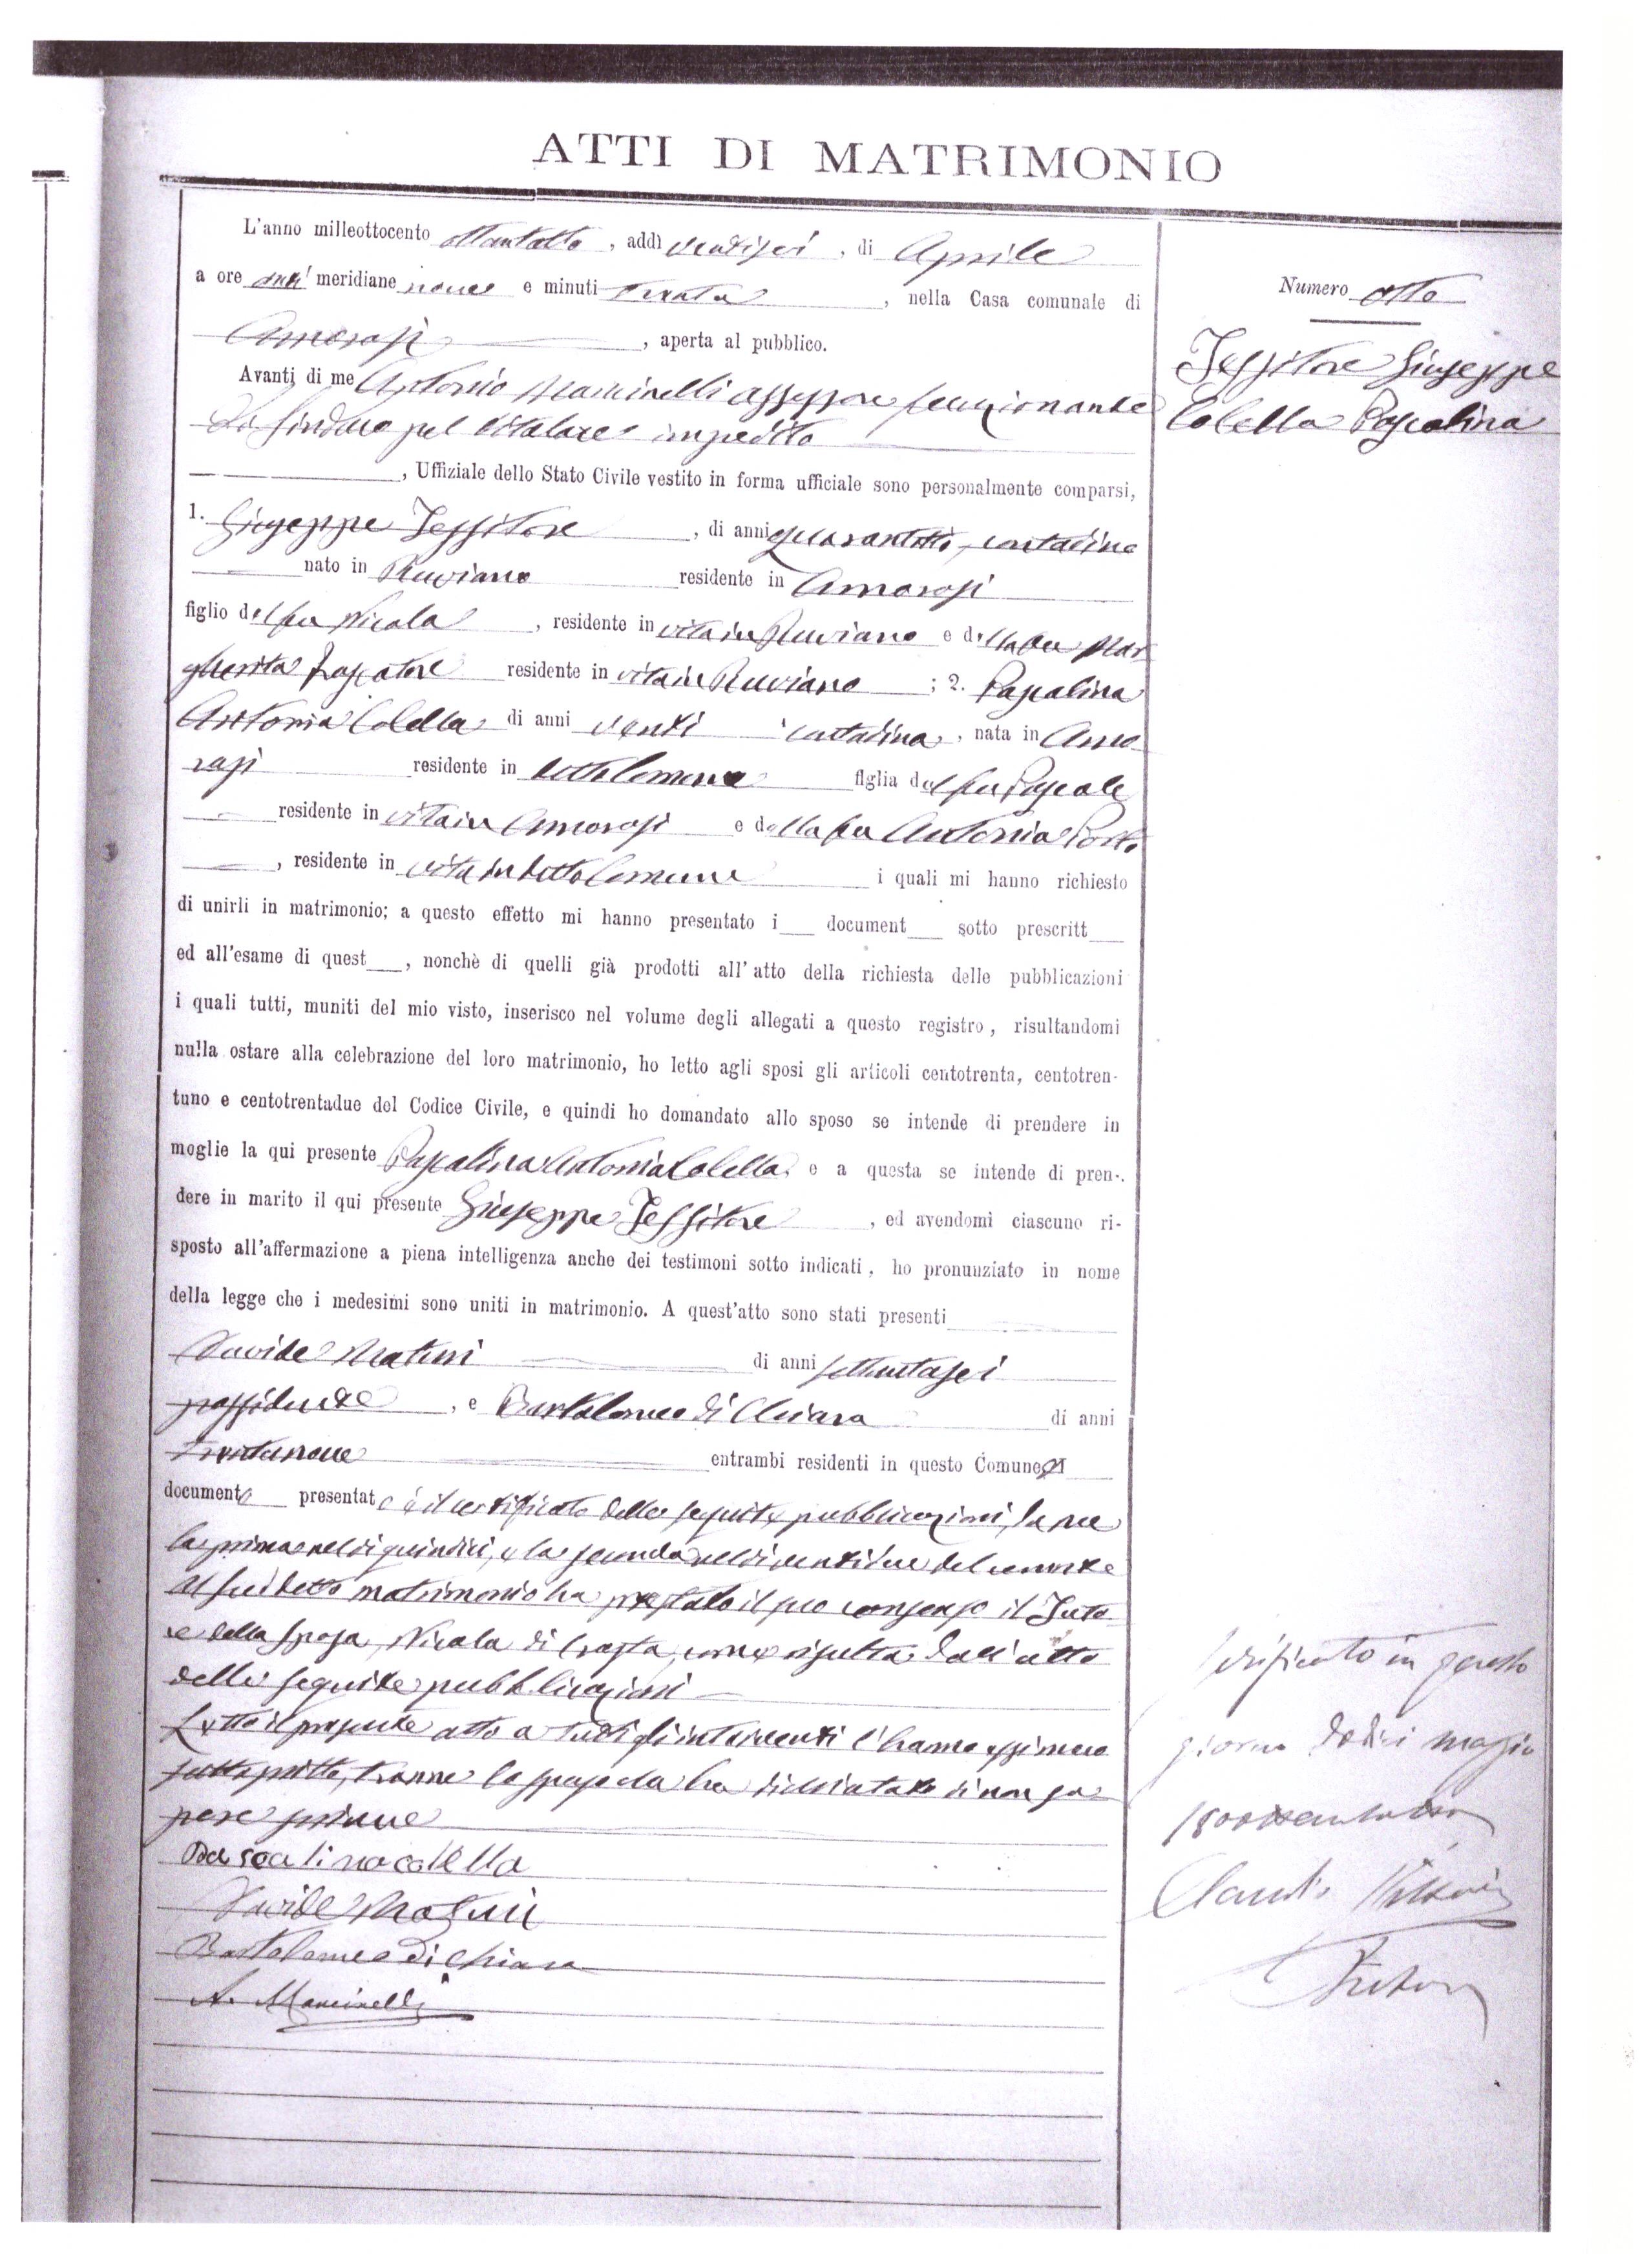 ATTI DI MATRIMONIO
L'anno milleottocento ottantotto, addì ventisei, di Aprile
a ore anti meridiane nove e minuti trenta, nella Casa comunale di
Amorosi, aperta al pubblico.
Avanti di me Antonio Mancinelli assessore funzionante
da Sindaco pel titolare impedito
, Uffiziale dello Stato Civile vestito in forma ufficiale sono personalmente comparsi,
1. Giuseppe Tessitore, di anni quarantotto, contadino
nato in Ruviano residente in Amorosi
figlio del fu Nicola, residente in vita in Ruviano e della fu Mar
gherita residente in vita in Ruviano; 2. Pasqalina
Antonia Colella di anni venti contadina, nata in Amo
rosi residente in detto Comune figlia del fu Pasqale
residente in vita in Amorosi e della fu Antonia
, residente in vita in detto Comune i quali mi hanno richiesto
di unirli in matrimonio; a questo effetto mi hanno presentato i___ document___ sotto prescritt___
ed all'esame di quest___, nonchè di quelli già prodotti all'atto della richiesta delle pubblicazioni
i quali tutti, muniti del mio visto, inserisco nel volume degli allegati a questo registro, risultandomi
nulla ostare alla celebrazione del loro matrimonio, ho letto agli sposi gli articoli centotrenta, centotren-
tuno e centotrentadue del Codice Civile, e quindi ho domandato allo sposo se intende di prendere in
moglie la qui presente Pasqalina Antonia Colella e a questa se intende di pren-
dere in marito il qui presente Giuseppe Tessitore, ed avendomi ciascuno ri-
sposto all'affermazione a piena intelligenza anche dei testimoni sotto indicati, ho pronunziato in nome
della legge che i medesimi sono uniti in matrimonio. A quest'atto sono stati presenti
Davide Maturi di anni settantasei
possidente, e Bartolomeo di Chiara di anni
trentanove entrambi residenti in questo Comune. Il
documento presentato è il certificato delle seguite pubblicazioni,
la prima nel dì quindici, e la seconda nel dì ventidue del corrente
Al suddetto matrimonio ha prestato il suo consenso il Tuto
re della sposa, Nicola di Crosta, come risulta dall'atto
delle seguite pubblicazioni
Letto il presente atto a tutti gli intervenuti l'hanno essi meco
sottoscritto, tranne lo sposo che ha dichiarato di non sa
pere
Pascalina colella
Davide Maturi
Bartolomeo di Chiara
A. Mancinelli
Numero otto
Tessitore Giuseppe
Colella Pasqalina
Verificato in questo
giorno dodici maggio
Pretore